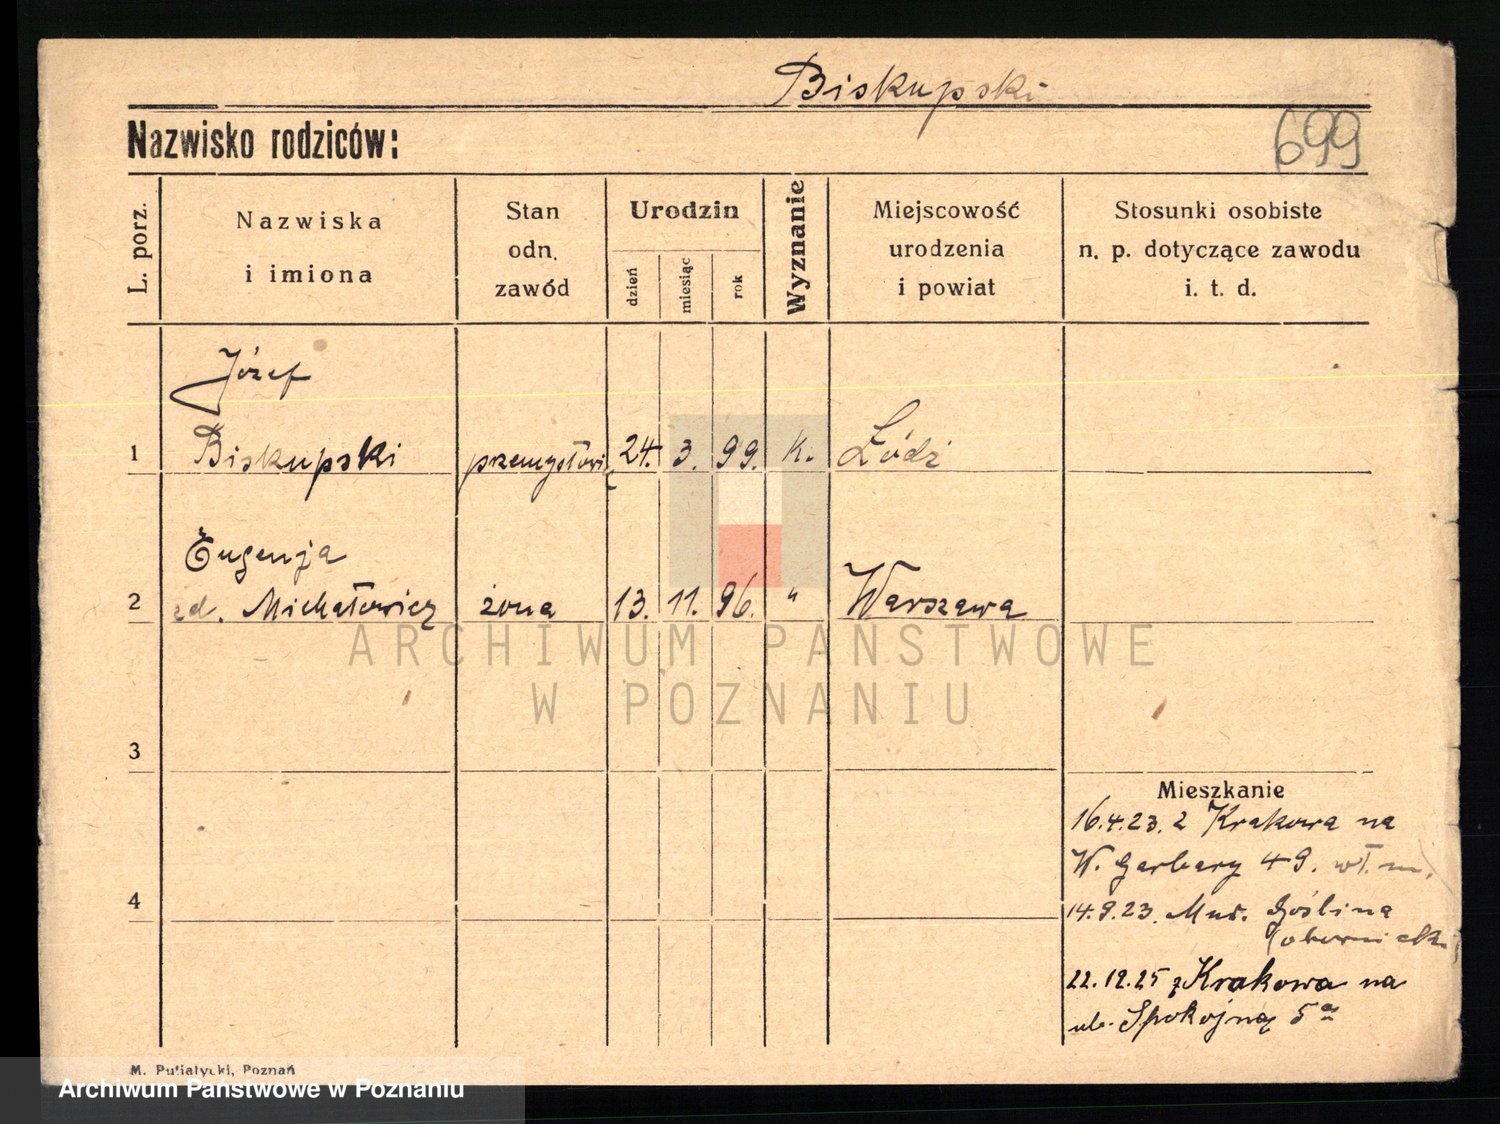 Biskupski
Nazwisko rodziców:
699
L. porz.
Nazwiska
i imiona
Stan
odn.
zawód
Urodzin
dzień
miesiąc
rok
Wyznanie
Miejscowość
urodzenia
i powiat
Stosunki osobiste
n. p. dotyczące zawodu
i. t. d.
Józef
1 Biskupski przemysłowiec 24. 3. 99. K. Łódź
Eugenja
2 zd. Michałowicz żona 13. 11. 96. " Warszawa
ARCHIWUM PAŃSTWOWE
W POZNANIU
3
Mieszkanie
16.4.23. z Krakowa na
W. Garbary 49. wł. m.
4
14.9.23. Mur. Goślina
22.12.25 z Krakowa na
ul. Spokojną 5a
M. Putiatycki, Poznań
Archiwum Państwowe w Poznaniu